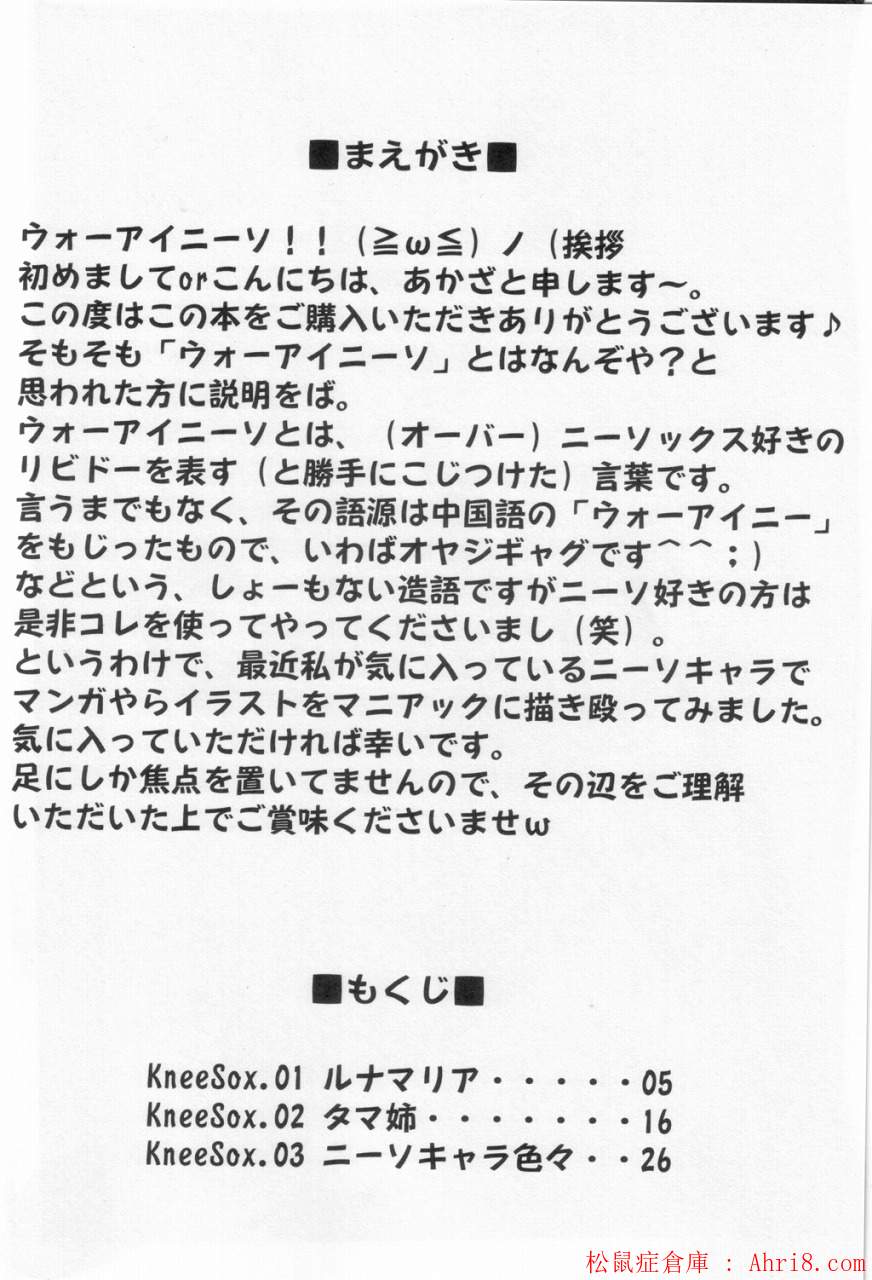 ■まえがき■
ウォーアイニーソ！！（≧ω≦）ノ（挨拶
初めましてorこんにちは、あかざと申します～。
この度はこの本をご購入いただきありがとうございます♪
そもそも「ウォーアイニーソ」とはなんぞや？と
思われた方に説明をば。
ウォーアイニーソとは、（オーバー）ニーソックス好きの
リビドーを表す（と勝手にこじつけた）言葉です。
言うまでもなく、その語源は中国語の「ウォーアイニー」
をもじったもので、いわばオヤジギャグです＾＾；）
などという、しょーもない造語ですがニーソ好きの方は
是非コレを使ってやってくださいまし（笑）。
というわけで、最近私が気に入っているニーソキャラで
マンガやらイラストをマニアックに描き殴ってみました。
気に入っていただければ幸いです。
足にしか焦点を置いてませんので、その辺をご理解
いただいた上でご賞味くださいませω
■もくじ■
KneeSox.01 ルナマリア・・・・・05
KneeSox.02 タマ姉・・・・・・・16
KneeSox.03 ニーソキャラ色々・・26
松鼠症倉庫 : Ahri8.com